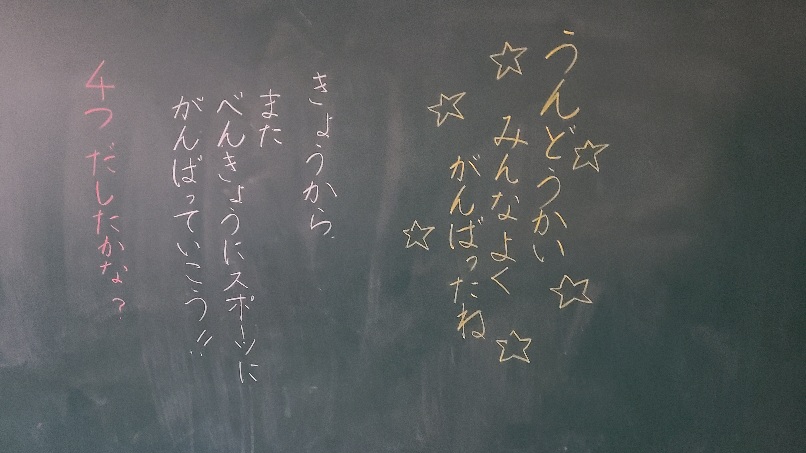 うんどうかい
みんなよく
がんばったね
きょうから
また
べんきょうにスポーツに
がんばっていこう!!
4つだしたかな?